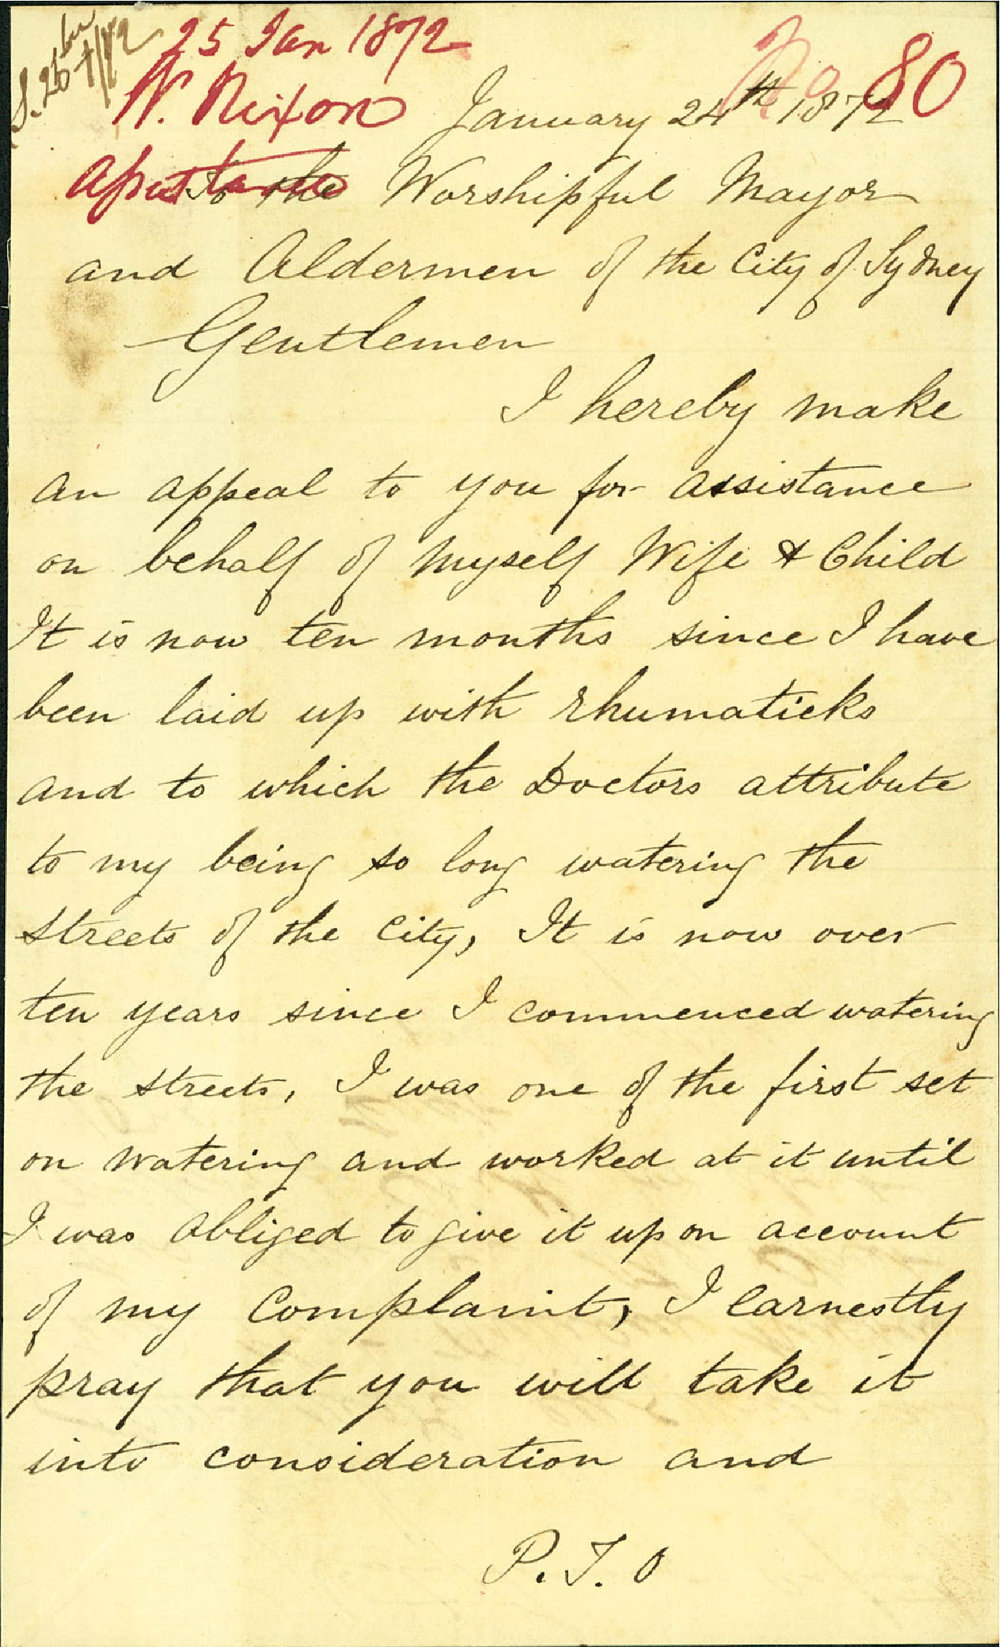 25 Jan 1872
No 80
W. Nixon
January 24th 1872
To the Worshipful Mayor
and Aldermen of the City of Sydney
Gentlemen
I hereby make
an appeal to you for assistance
on behalf of myself Wife & Child
It is now ten months since I have
been laid up with rhumaticks
and to which the Doctors attribute
to my being so long watering the
streets of the City, It is now over
ten years since I commenced watering
the streets, I was one of the first set
on watering and worked at it until
I was obliged to give it up on account
of my Complaint, I earnestly
pray that you will take it
into consideration and
P.T.O